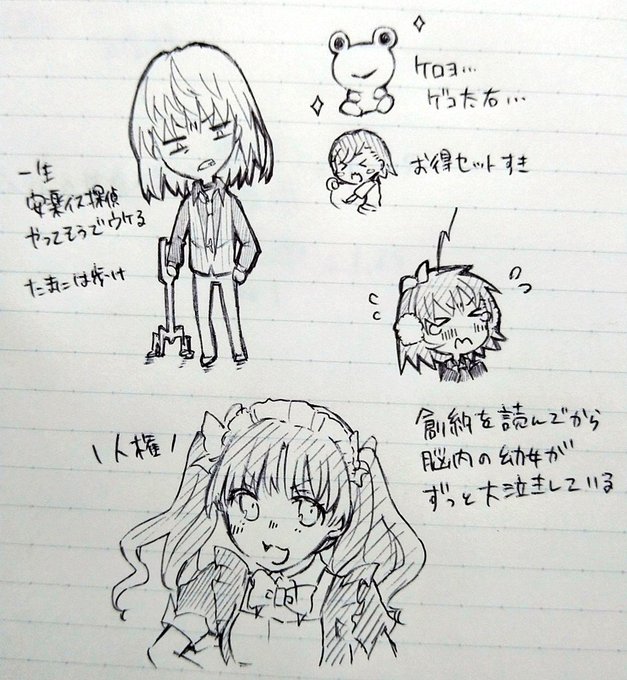 ケロヨ…
ゲコ太右…
お得セットすき
一生
安楽イス探偵
やってそうでウケる
たまには歩け
\人権/
創約を読んでから
脳内の幼女が
ずっと大泣きしている